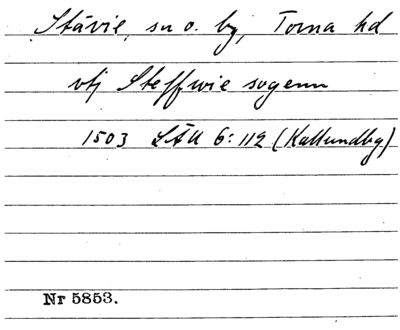 Stävie, sn o. by, Torna hd
vtj Steffwie sogenn
1503 LÄU 6:112 (Kallundbg)
Nr 5853.